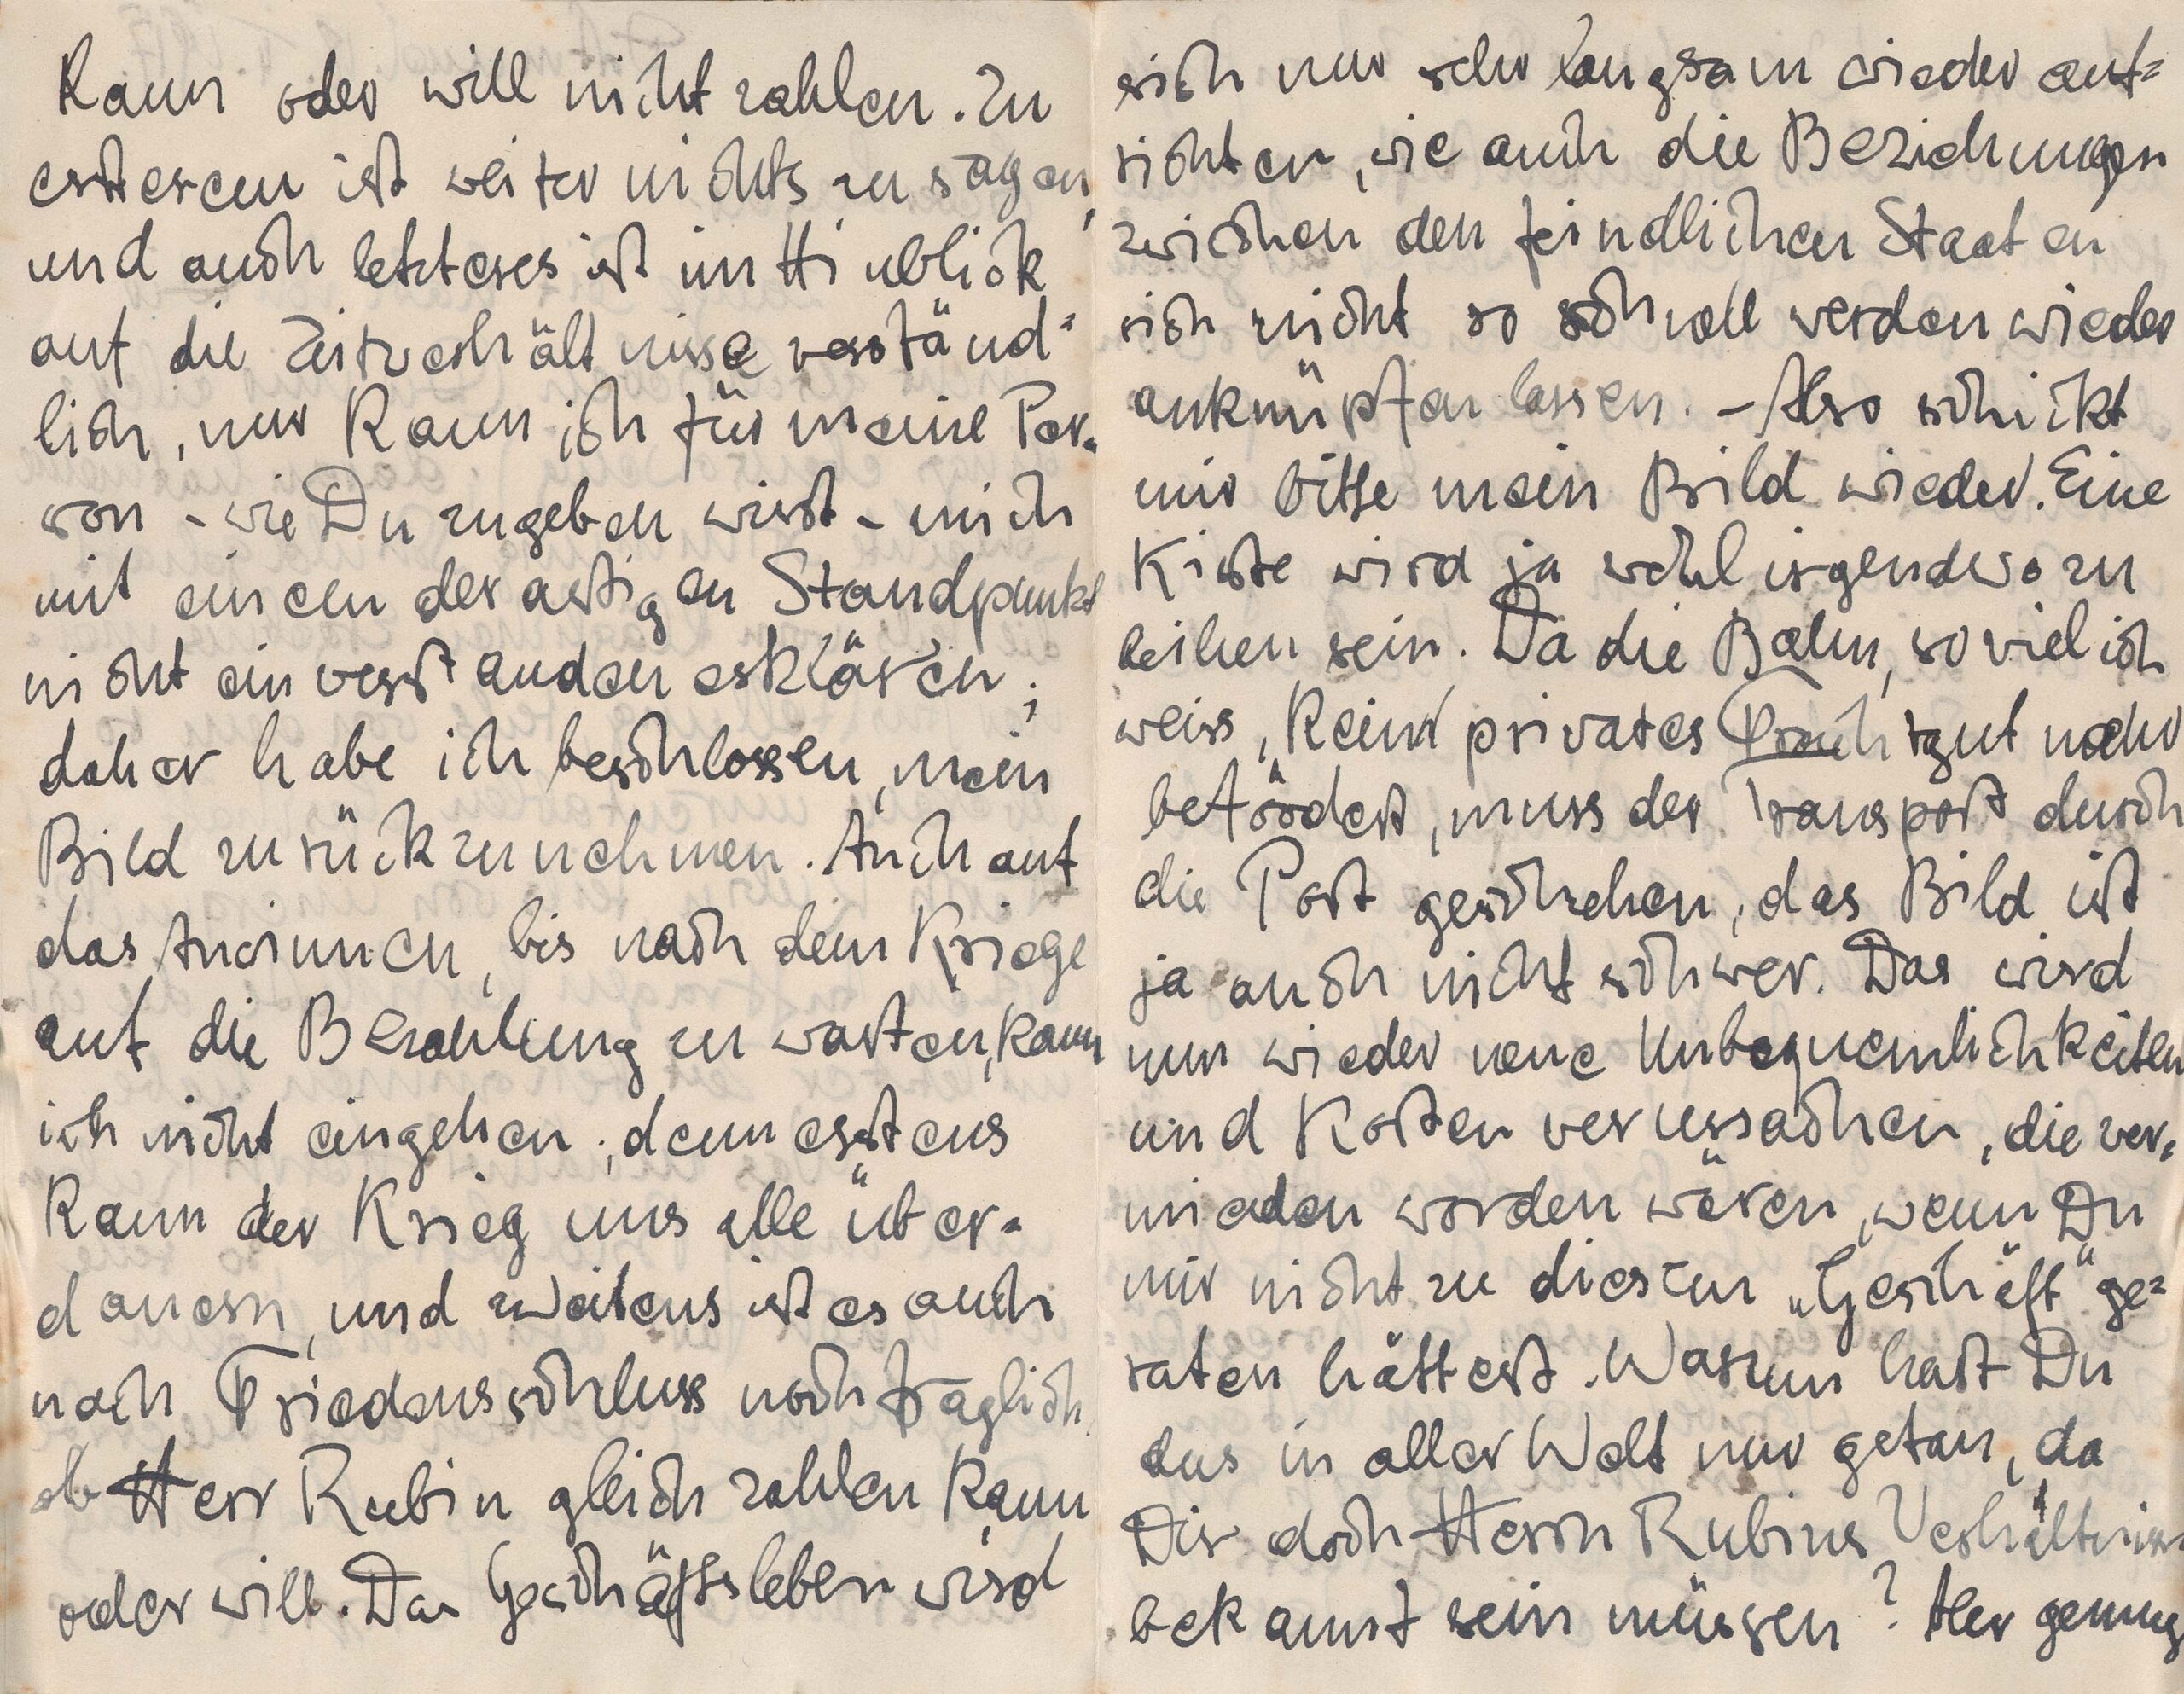 kann oder will nicht zahlen. Zu
ersterem ist weiter nichts zu sagen,
und auch letzteres ist im Hinblick
auf die Zeitverhältnisse verständ=
lich, nur kann ich für meine Per=
son - wie Du zugeben wirst - mich
mit einem derartigen Standpunkt
nicht einverstanden erklären;
daher habe ich beschlossen, mein
Bild zurückzunehmen. Auch auf
das Ansinnen, bis nach dem Kriege
auf die Bezahlung zu warten, kann
ich nicht eingehen; denn erstens
kann der Krieg uns alle über=
dauern, und zweitens ist es auch
nach Friedensschluss noch fraglich
ob Herr Rubin gleich zahlen kann
oder will. Das Geschäftsleben wird
sich nur sehr langsam wieder auf=
richten, wie auch die Beziehungen
zwischen den feindlichen Staaten
sich nicht so schnell werden wieder
anknüpfen lassen. - Also schickt
mir bitte mein Bild wieder. Eine
Kiste wird ja wohl irgendwo zu
leihen sein. Da die Bahn, soviel ich
weiss, kein privates Frachtgut mehr
befördert, muss der Transport durch
die Post geschehen, das Bild ist
ja auch nicht schwer. Das wird
nun wieder neue Unbequemlichkeiten
und Kosten verursachen, die ver=
mieden worden wären, wenn Du
mir nicht zu diesem „Geschäft" ge=
raten hättest. Warum hast Du
das in aller Welt nur getan, da
Dir doch Herrn Rubins Verhältnisse
bekannt sein müssen? Aber genug